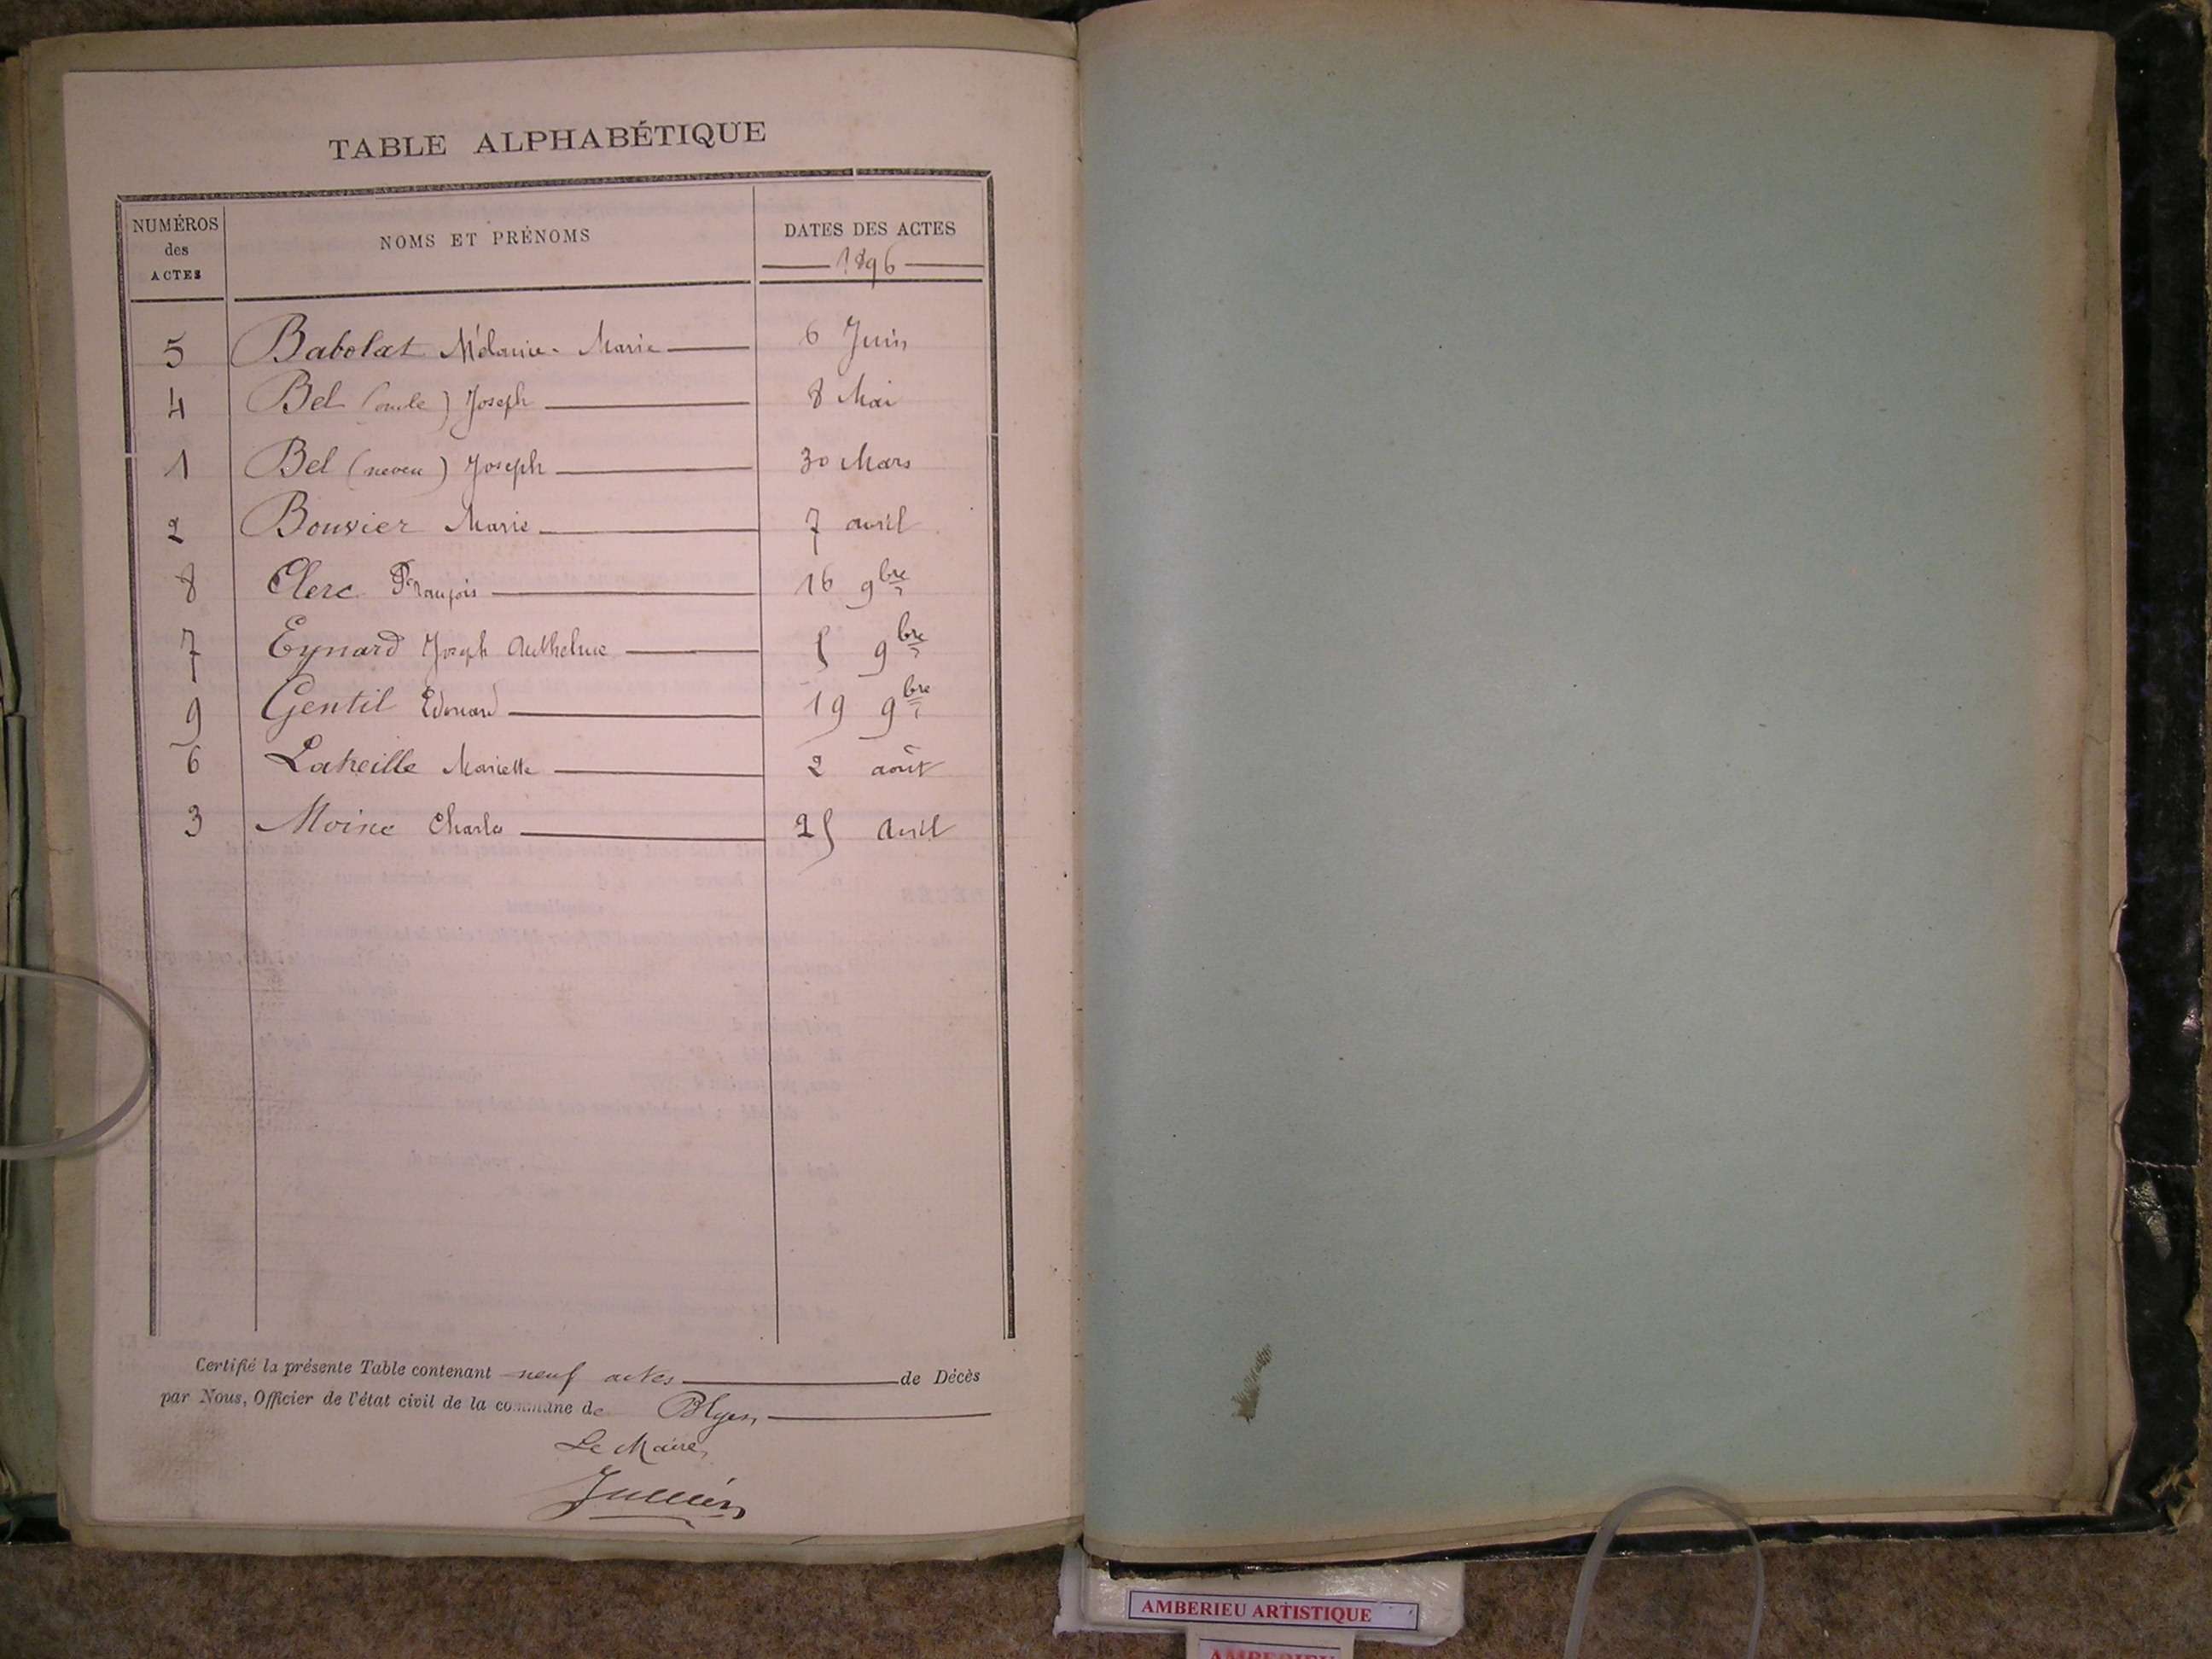 TABLE ALPHABÉTIQUE
NUMÉROS des ACTES
NOMS ET PRÉNOMS
DATES DES ACTES
1896
5 Babolat Mélanie-Marie 6 Juin
4 Bel (oncle) Joseph 8 Mai
1 Bel (neveu) Joseph 30 Mars
2 Bouvier Marie 7 avril
8 Clerc François 16 9bre
7 Eynard Joseph Anthelme 5 9bre
9 Gentil Edouard 19 9bre
6 Laheille Mariette 2 août
3 Moine Charles 25 Avril
Certifié la présente Table contenant neuf actes de Décès
par Nous, Officier de l'état civil de la commune de Blyes,
Le Maire,
Jullien
AMBERIEU ARTISTIQUE
AMBERIEU